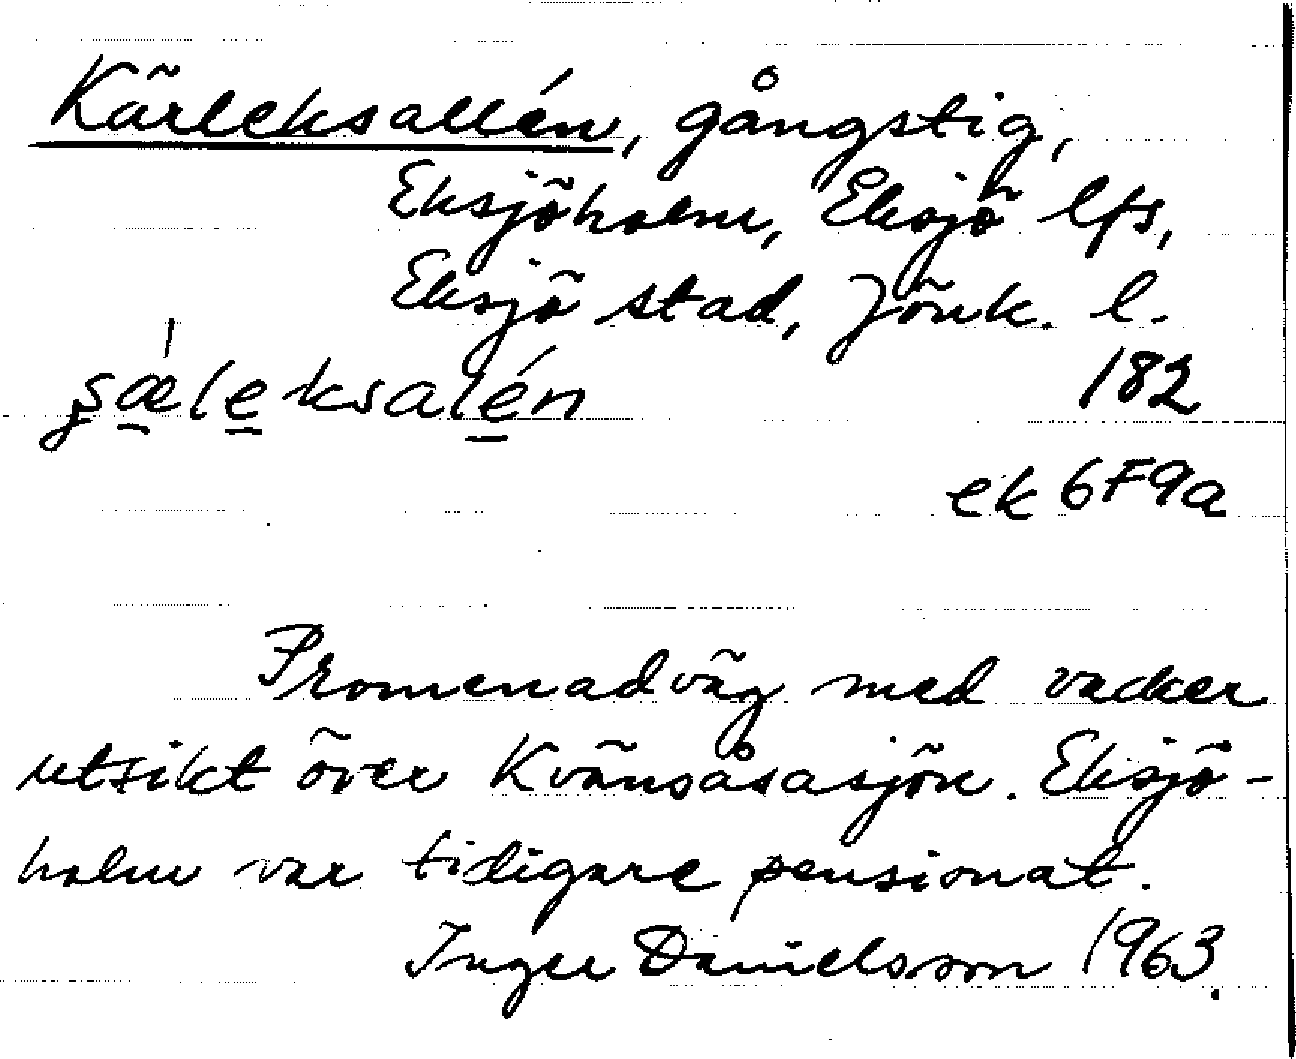 Kärleksallén, gångstig,
Eksjöholm, Eksjö lfs,
Eksjö stad, Jönk. l.
şæ̲̍le̲ksalé̲n
182
ek 6F9a
Promenadväg med vacker
utsikt över Kvänsåsasjön. Eksjö-
holm var tidigare pensionat.
Inger Danielsson 1963.